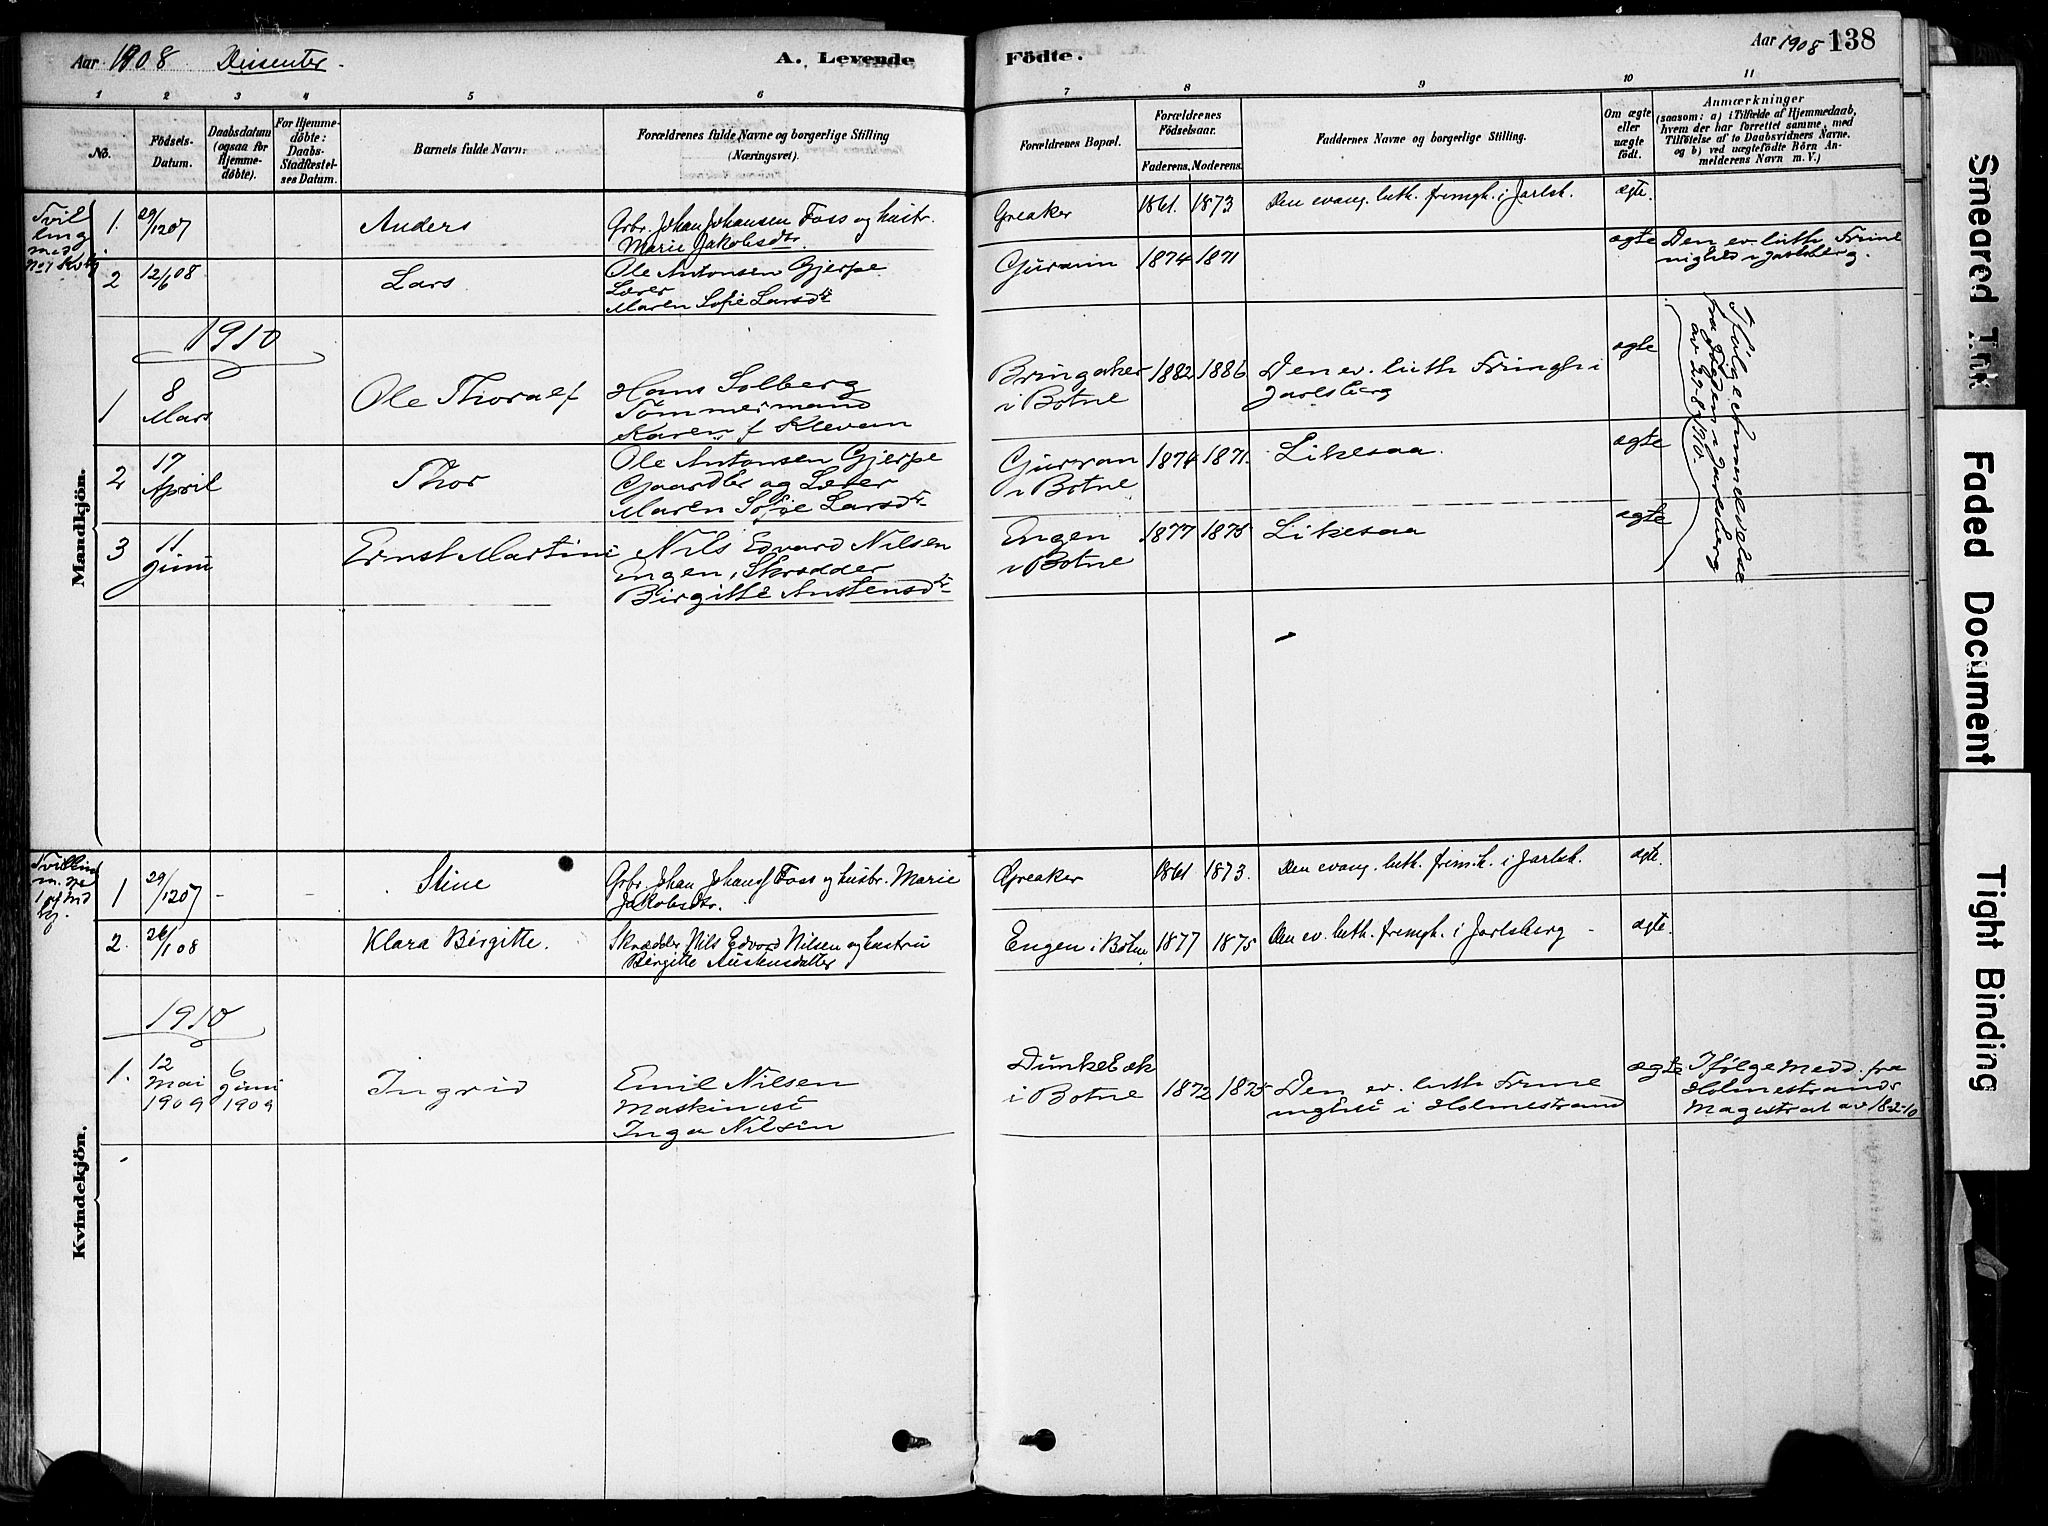 Aar 1908 Dissenter. A. Levende Födte. Aar 1908 138
1 2 3 4 5 6 7 8 9 10 11
No.
Födsels-Datum.
Daabsdatum (ogsaa for Hjemme-døbte).
For Hjemme-döbte: Daabs-Stadfæstel-ses Datum.
Barnets fulde Navn.
Forældrenes fulde Navne og borgerlige Stilling (Næringsvei).
Forældrenes Bopæl.
Forældrenes Födselsaar.
Faderens. Moderens.
Faddernes Navne og borgerlige Stilling.
Om ægte eller uægte födt.
Anmærkninger
(saasom: a) i Tilfælde af Hjemmedaab,
hvem der har forrettet samme, med
Tilföielse af to Daabsvidners Navne,
og b) ved uægtefödte Börn An-
melderens Navn m. V.)
Mandkjön.
Tvil
ling
med
No 1 Kvkj.
1. 29/12 07 Anders Grbr. Johan Johansen Foss og hustr. Greaker 1861. 1873 Den evang. luth. frimgh. i Jarlsb. ægte.
Marie Jakobsdtr.
2 12/6 08 Lars Ole Antonsen Gjerpe Gurann 1874 1871 ægte Den ev. luth Frime
Lærer nighed i Jarlsberg.
Maren Sofie Larsdtr
1910
1 8 Mars Ole Thoralf Hans Solberg Bringaker 1882 1886 Den ev. luth Frimgh i ægte
Tømmermand i Botne Jarlsberg
Karen f Klevan
2 17 April Thor Ole Antonsen Gjerpe Gurran 1874 1871. Likesaa. ægte
Gaardbr og Lærer i Botne
Maren Sofie Larsdtr
3 11 Juni Ernst Martin Nils Edvard Nilsen Engen 1877 1875 Likesaa ægte
Engen, Skrædder i Botne
Birgitte Austensdtr
Ifølge Anmeldelse
fra Fogden i Jarlsberg
av 29-8-1910.
Kvindekjön.
Tvilling
1 29/12 07 - - Stine Grbr. Johan Johansf Foss og hustr. Marie Greaker 1861 1873. Den evang. luth. frim.h. i Jarlsb. ægte.
Jakobsdtr.
2. 26/1 08 Klara Birgitte. Skrædder Nils Edvard Nilsen og hustru Engen i Botne 1877 1875 Den ev. luth. frimgh. i Jarlsberg - ægte.
Birgitte Austensdatter
1910
1. 12 Mai 1909 6 Juni 1909 Ingrid Emil Nilsen Dunkebæk 1872 1875 Den ev. luth Frime ægte Ifølge Medd. fra
Maskinist i Botne nighet i Holmestrand Holmestrands
Inga Nilsen Magistrat av 18-2-10
Smeared Ink
Faded Document
Tight Binding